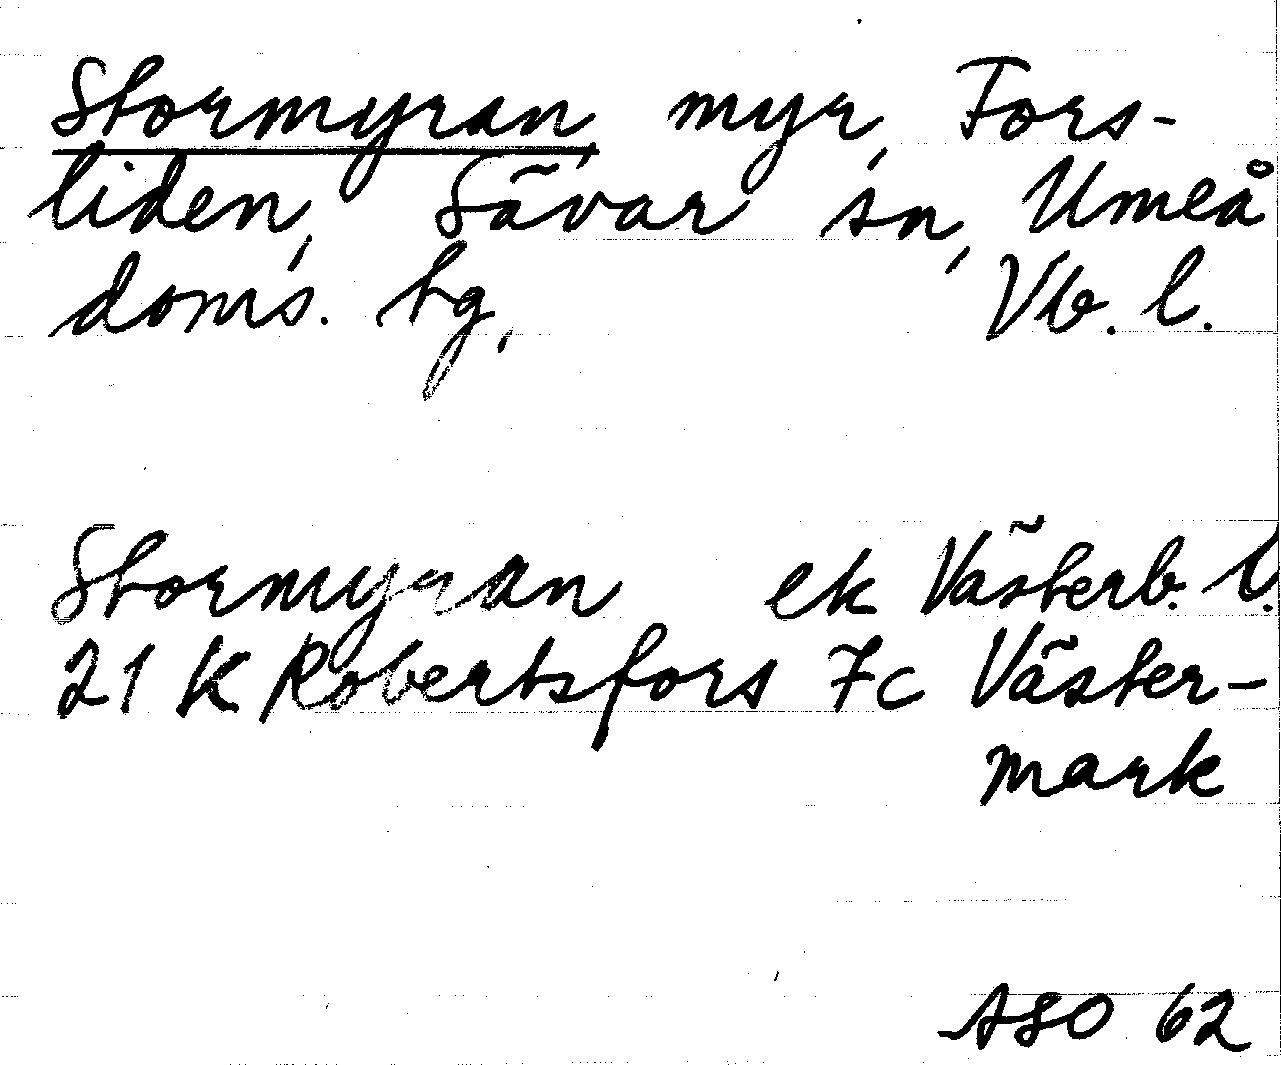 Stormyran, myr, Fors-
liden, Sävar sn, Umeå
doms. tg, Vb. l.
Stormyran ek Västerb. l.
21 K Robertsfors 7c Väster-
mark
ASO 62